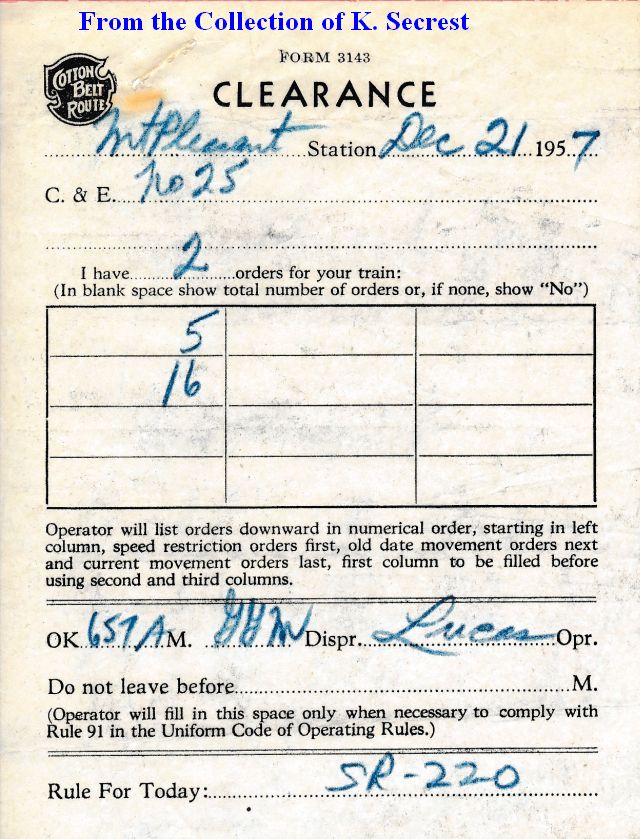 From the Collection of K. Secrest
FORM 3143
COTTON
BELT
ROUTE
CLEARANCE
Mt Pleasant Station Dec 21 1957
C. & E. No 25
I have 2 orders for your train:
(In blank space show total number of orders or, if none, show “No”)
5
16
Operator will list orders downward in numerical order, starting in left
column, speed restriction orders first, old date movement orders next
and current movement orders last, first column to be filled before
using second and third columns.
OK 657 A M. Dispr. Lucas Opr.
Do not leave before M.
(Operator will fill in this space only when necessary to comply with
Rule 91 in the Uniform Code of Operating Rules.)
Rule For Today: SR-220